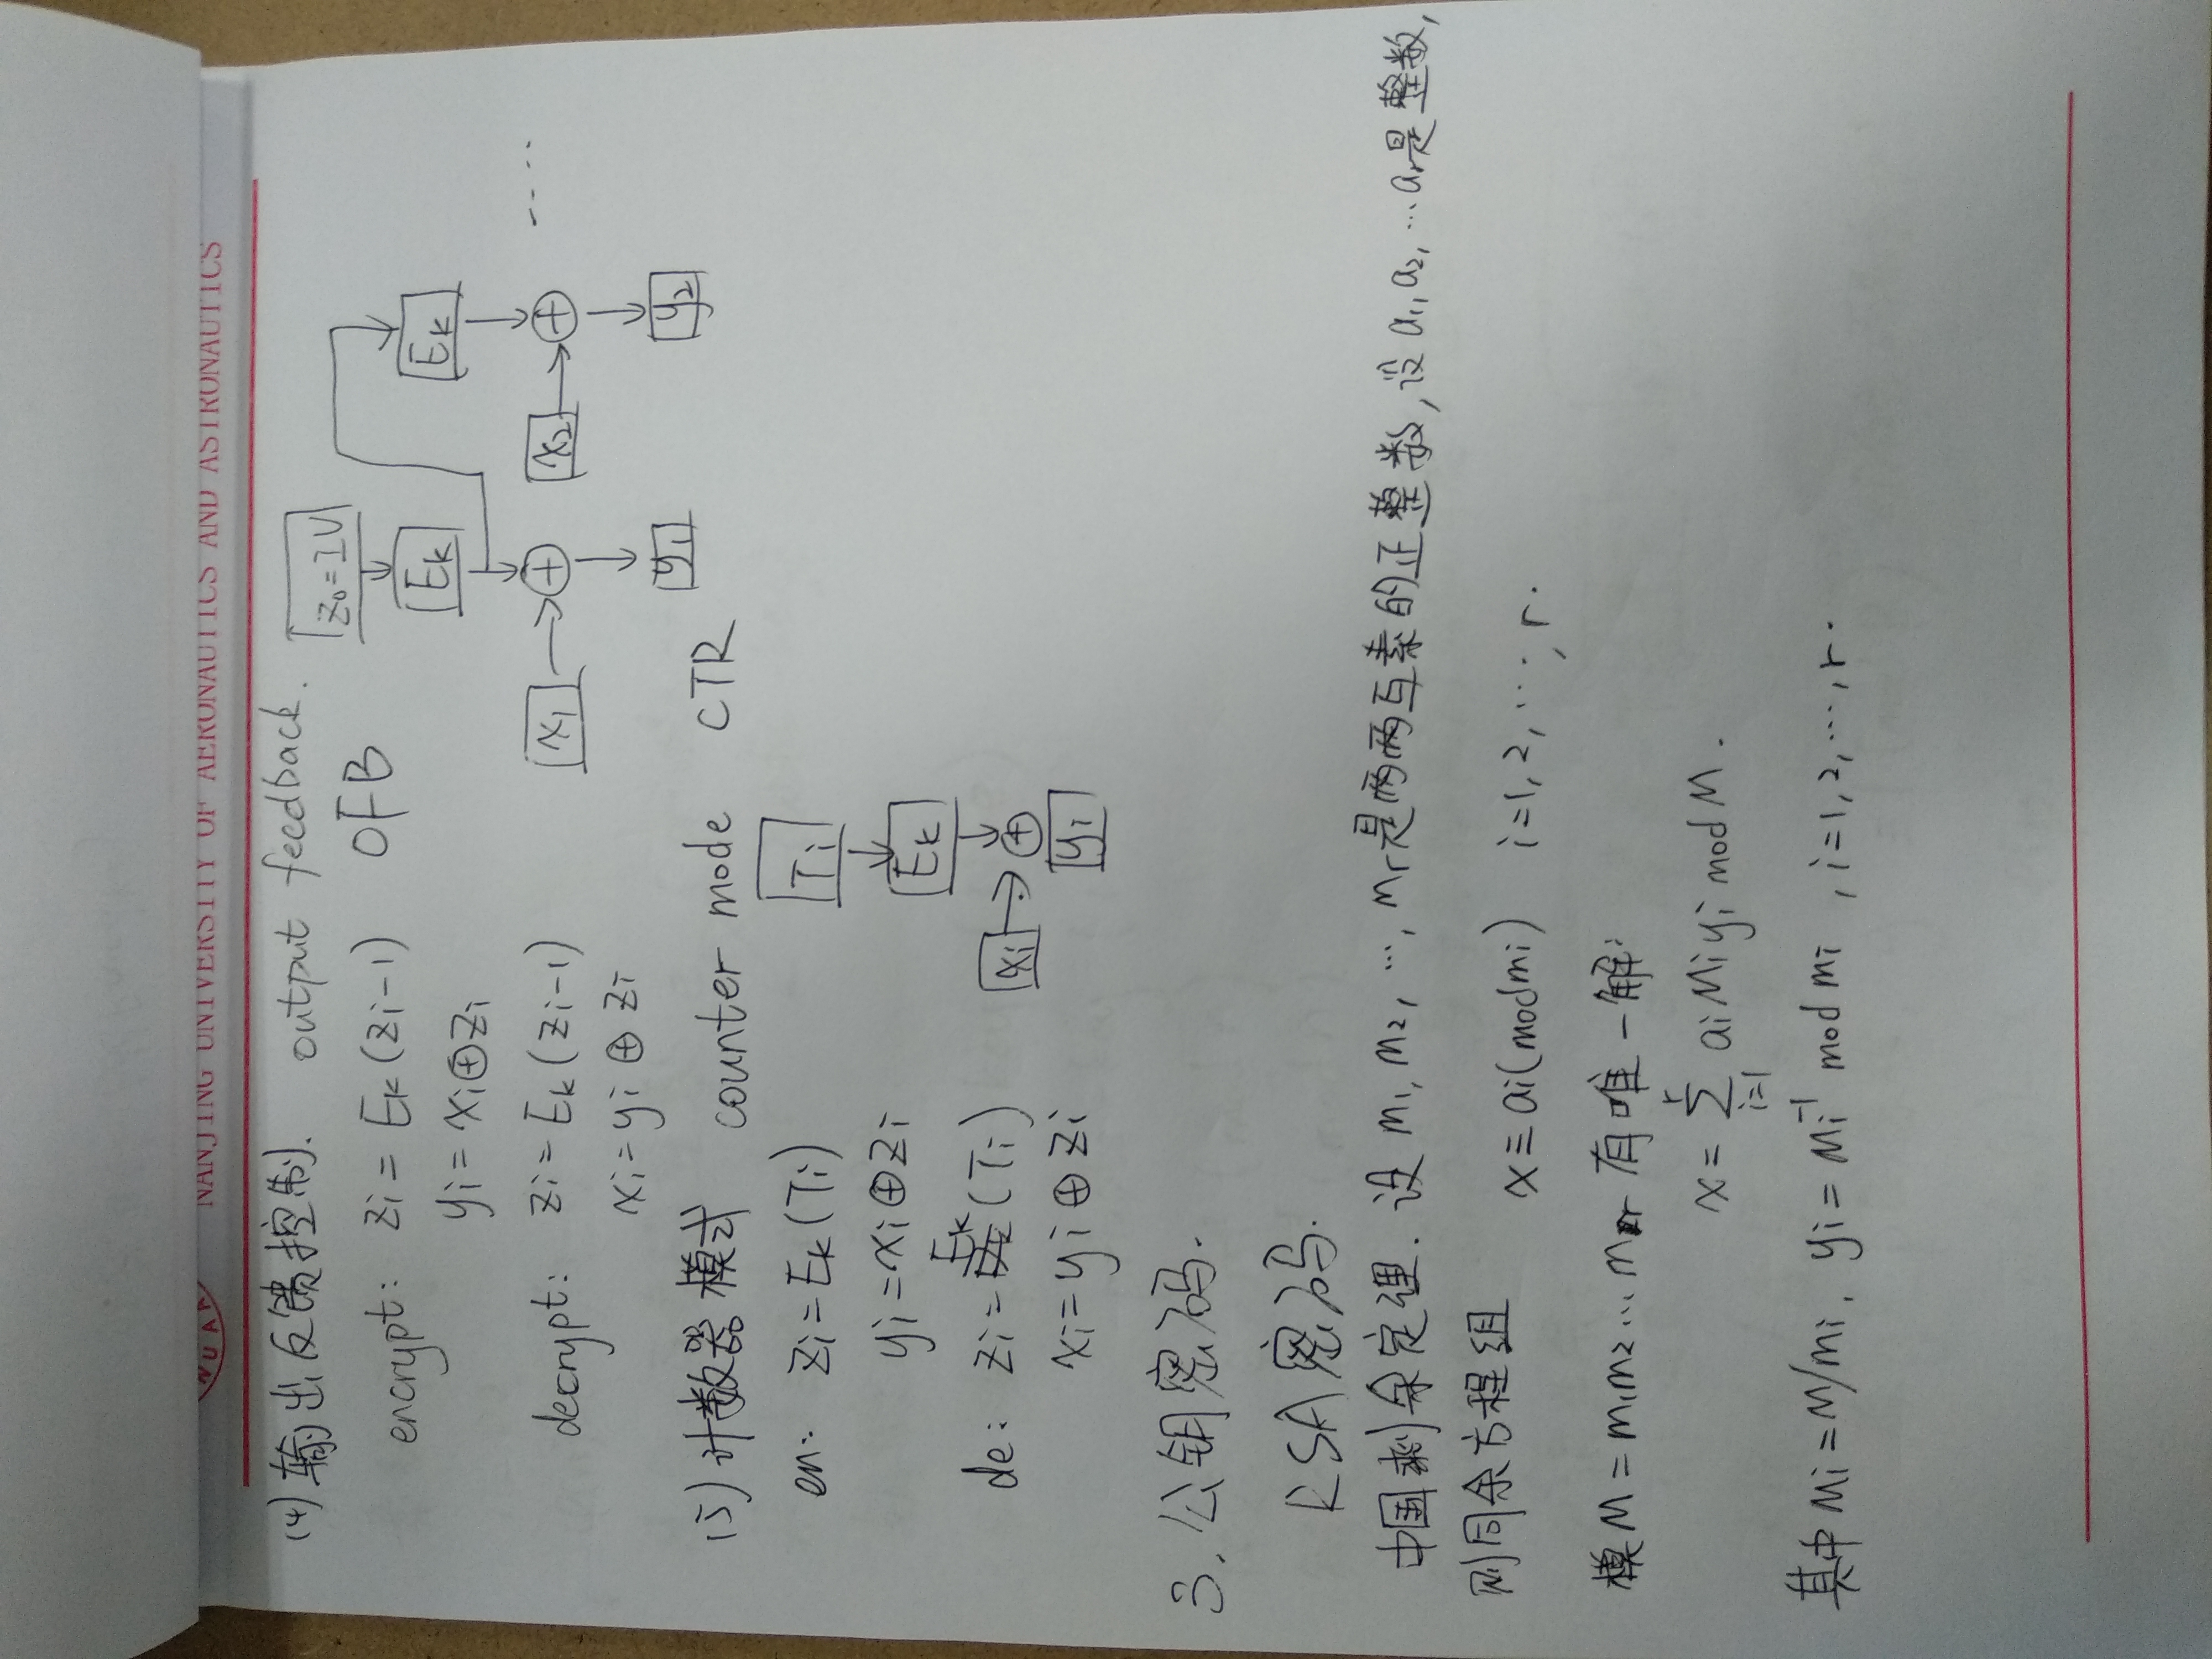 NUAA
NANJING UNIVERSITY OF AERONAUTICS AND ASTRONAUTICS
(4) 输出反馈控制. output feedback.
OFB
encrypt: zi = Ek(zi-1)
yi = xi⊕zi
decrypt: zi = Ek(zi-1)
xi = yi ⊕ zi
z0 = IV
Ek
Ek
x1 → ⊕
x2 → ⊕ ....
y1
y2
(5) 计数器模式 counter mode CTR
en: zi = Ek(Ti)
yi = xi⊕zi
de: zi = Ek(Ti)
xi = yi ⊕ zi
Ti
Ek
xi → ⊕
yi
3. 公钥密码.
RSA密码.
中国剩余定理. 设 m1, m2, ..., mr是两两互素的正整数, 设 a1, a2, ... ar是整数,
则同余方程组
x ≡ ai(mod mi) i=1, 2, ..., r.
模M = m1m2...mr 有唯一解:
x = ∑_{i=1}^{r} aiMiyi mod M.
其中Mi = M/mi, yi = Mi⁻¹ mod mi, i=1, 2, ..., r.